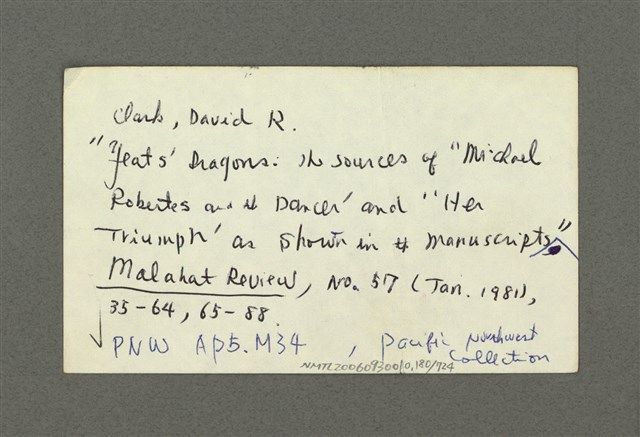 Clark, David R.
"Yeats' Dragons: the sources of "Michael
Robartes and the Dancer' and "Her
Triumph' as shown in the manuscripts"
Malahat Review, No. 57 (Jan. 1981),
35-64, 65-88.
PNW AP5.M34 , Pacific Northwest
Collection
NMTL20060930010,180/724